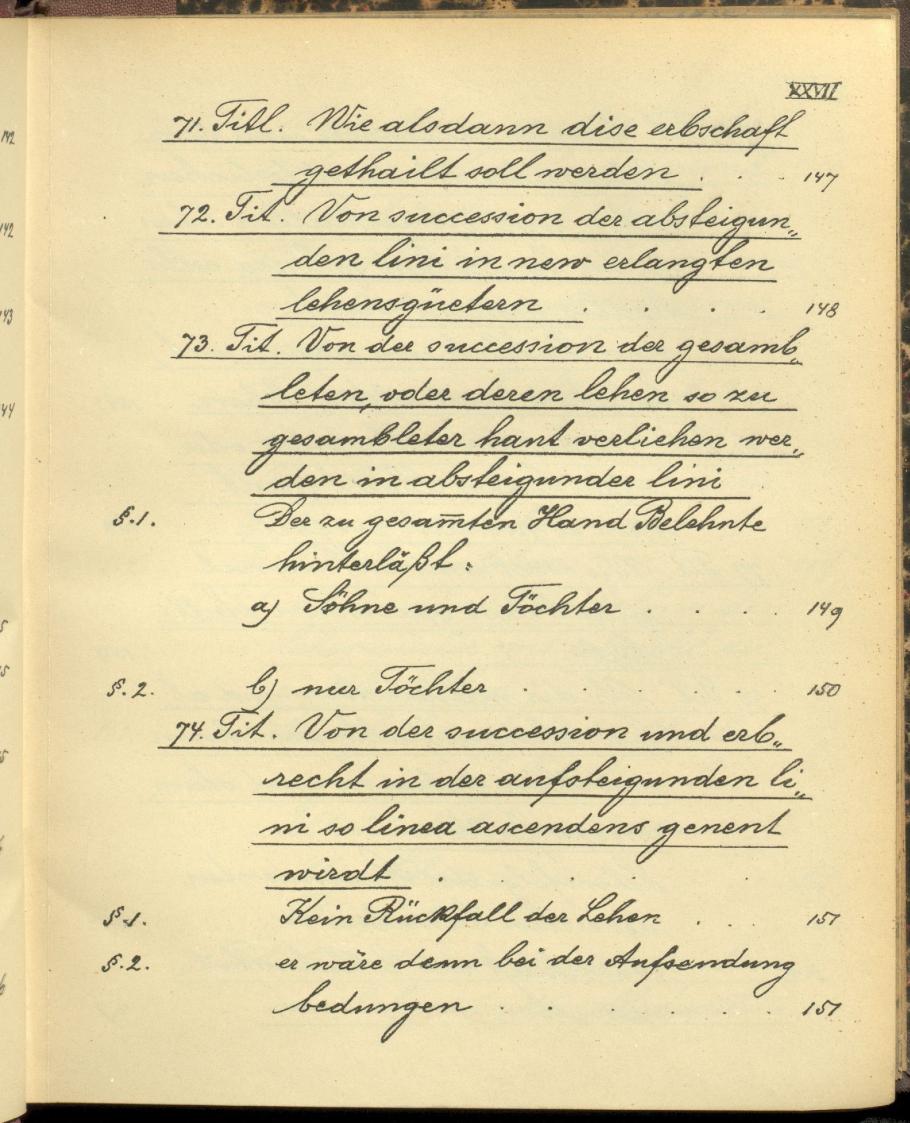 XXVII
71. Titl. Wie alsdann dise erbschaft
gethailt soll werden . . . 147
72. Tit. Von succession der absteigun„
den lini in new erlangten
lehensgüetern . . . . 148
73. Tit. Von der succession der gesamb„
leten, oder deren lehen so zu
gesambleter hant verliehen wer„
den in absteigunder lini
§.1. Der zu gesam̅ten Hand Belehnte
hinterläßt:
a) Söhne und Töchter . . . . 149
§.2. b) nur Töchter . . . . . . 150
74. Tit. Von der succession und erb„
recht in der aufsteigunden li„
ni so linea ascendens genent
wirdt . . . . .
§.1. Kein Rückfall der Lehen . . 151
§.2. er wäre denn bei der Aufsendung
bedungen . . . . . . 151